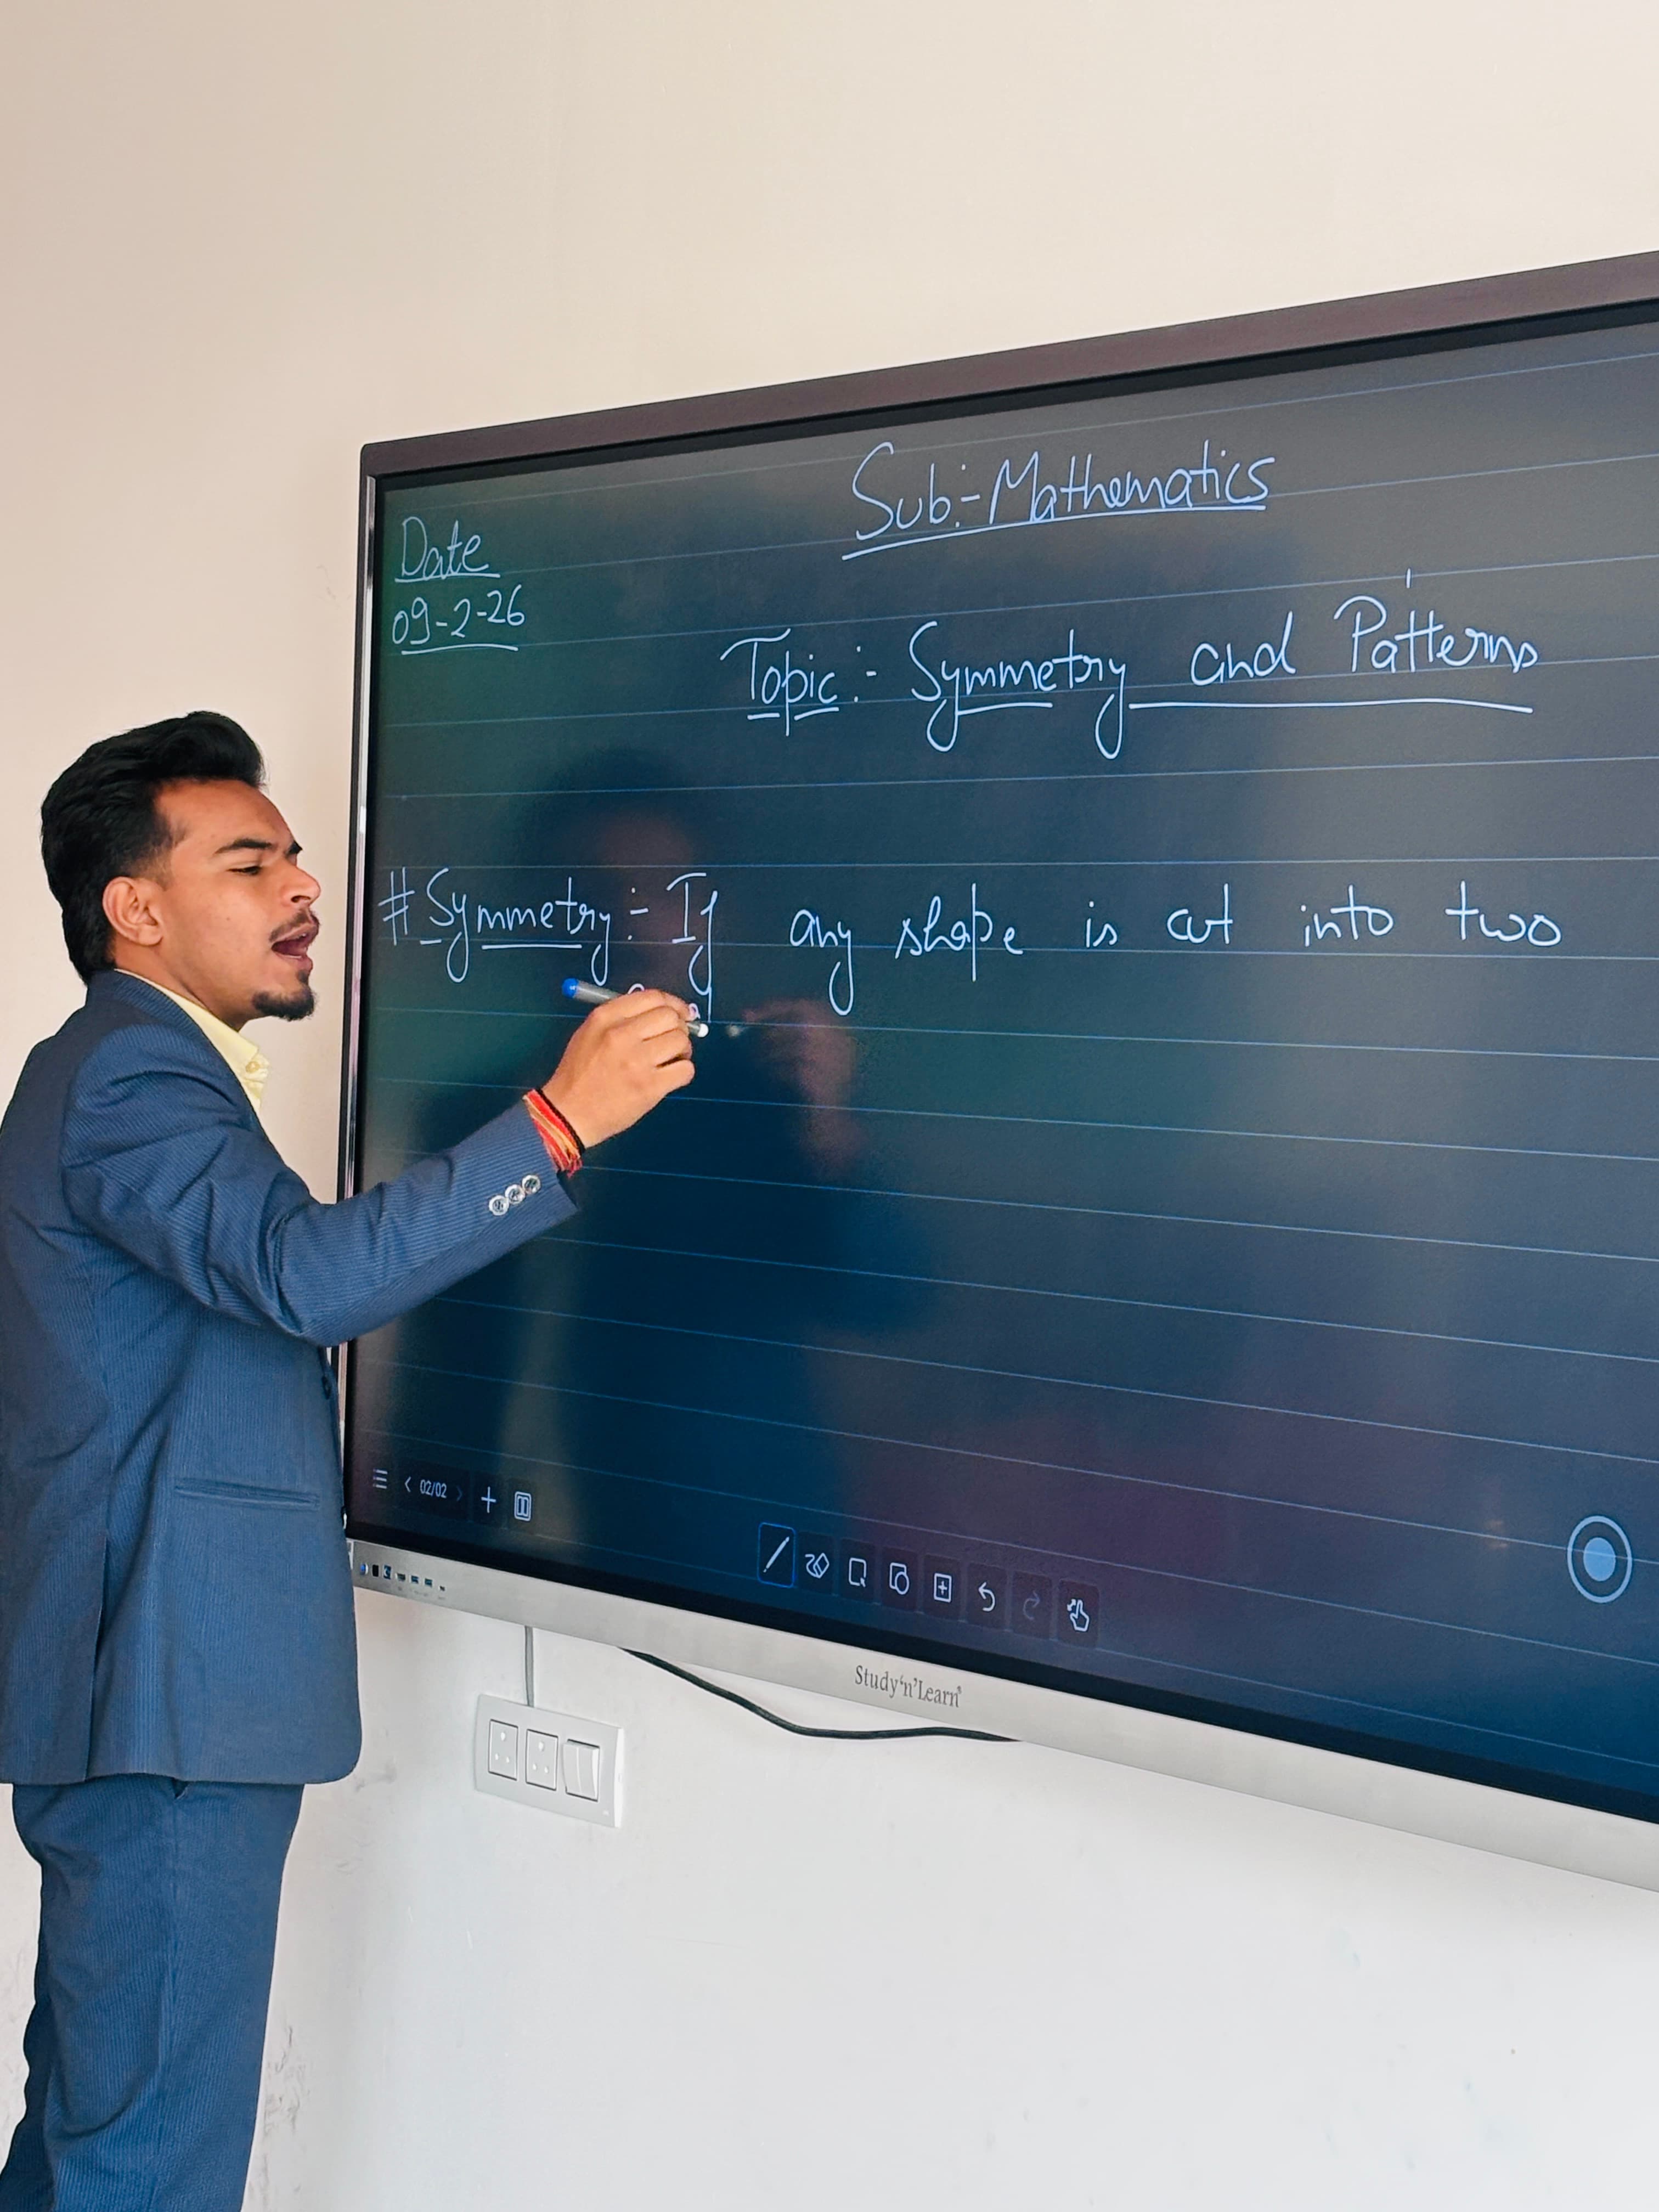 Sub:-Mathematics
Date
09-2-26
Topic:- Symmetry and Patterns
# Symmetry:- If any shape is cut into two
02/02
Study'n'Learn